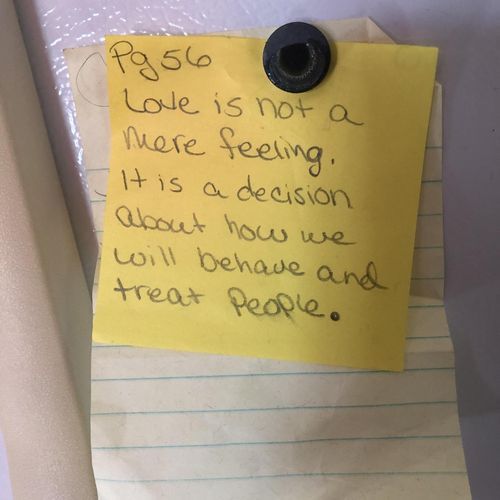 Pg 56
Love is not a
mere feeling.
It is a decision
about how we
will behave and
treat People.